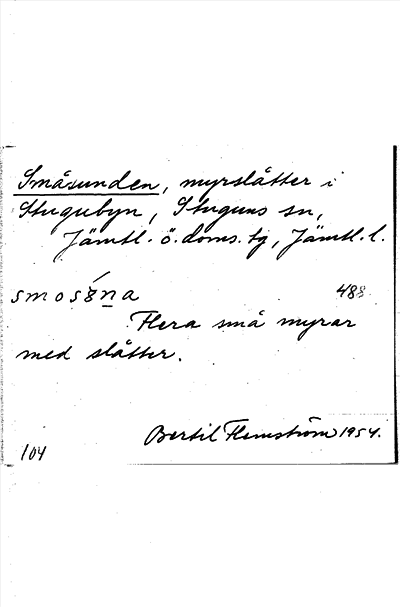 Småsunden, myrslåtter i
Stugubyn, Stuguns sn,
Jämtl. ö. doms. tg, Jämtl. l.
488
Flera små myrar
med slåtter.
Bertil Flemström 1954.
104